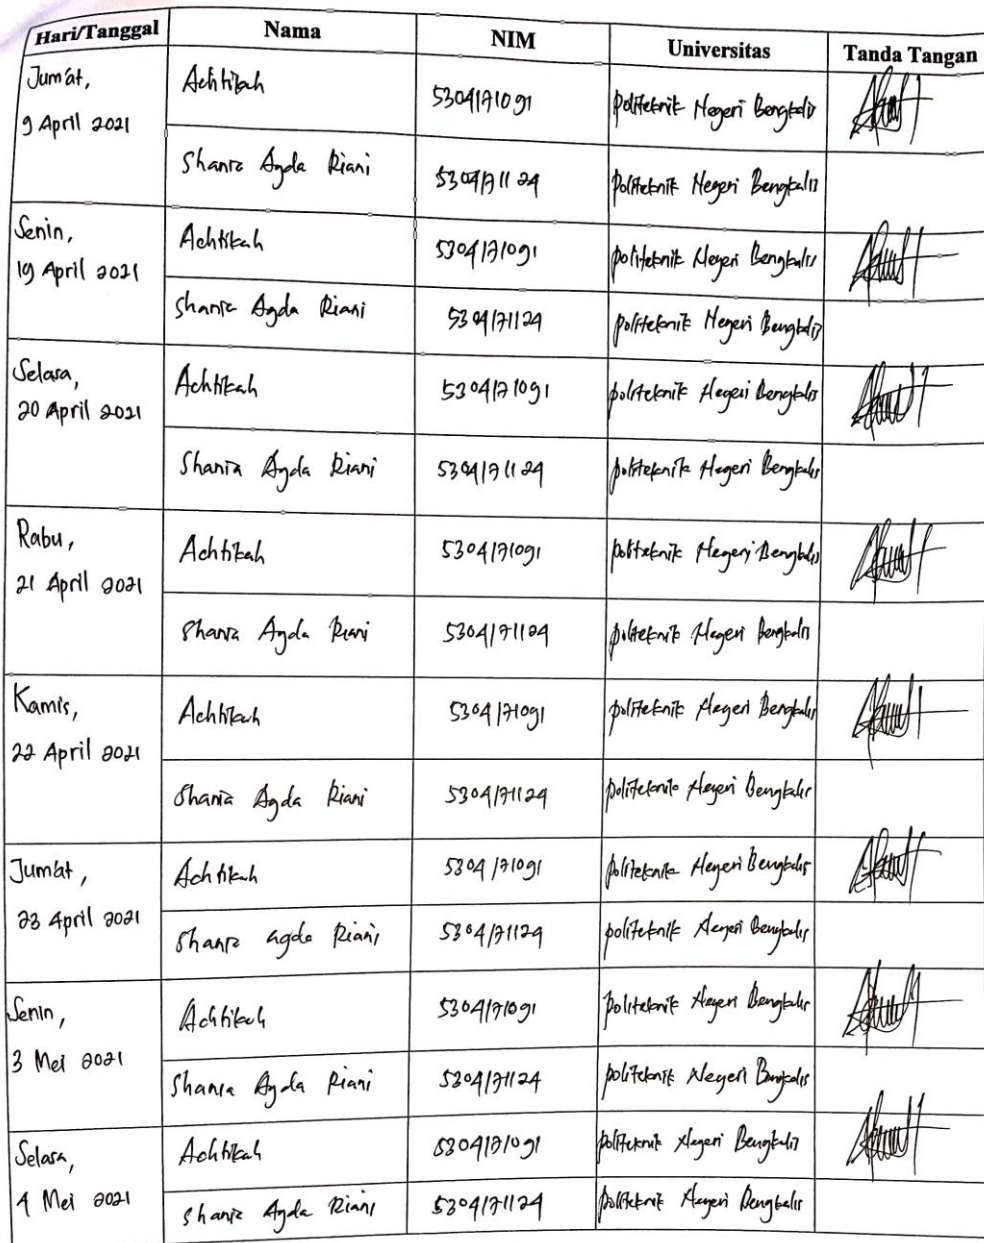 Hari/Tanggal Nama NIM Universitas Tanda Tangan
Jum'at, Achtikah 5304171091 Politeknik Negeri Bengkalis
9 April 2021
Shania Agda Riani 5304171124 Politeknik Negeri Bengkalis
Senin, Achtikah 5304171091 Politeknik Negeri Bengkalis
19 April 2021
Shania Agda Riani 5304171124 Politeknik Negeri Bengkalis
Selasa, Achtikah 5304171091 Politeknik Negeri Bengkalis
20 April 2021
Shania Agda Riani 5304171124 Politeknik Negeri Bengkalis
Rabu, Achtikah 5304171091 Politeknik Negeri Bengkalis
21 April 2021
Shania Agda Riani 5304171124 Politeknik Negeri Bengkalis
Kamis, Achtikah 5304171091 Politeknik Negeri Bengkalis
22 April 2021
Shania Agda Riani 5304171124 Politeknik Negeri Bengkalis
Jum'at, Achtikah 5304171091 Politeknik Negeri Bengkalis
23 April 2021
Shania agda Riani 5304171124 Politeknik Negeri Bengkalis
Senin, Achtikah 5304171091 Politeknik Negeri Bengkalis
3 Mei 2021
Shania Agda Riani 5304171124 Politeknik Negeri Bengkalis
Selasa, Achtikah 5304171091 Politeknik Negeri Bengkalis
4 Mei 2021
Shania Agda Riani 5304171124 Politeknik Negeri Bengkalis